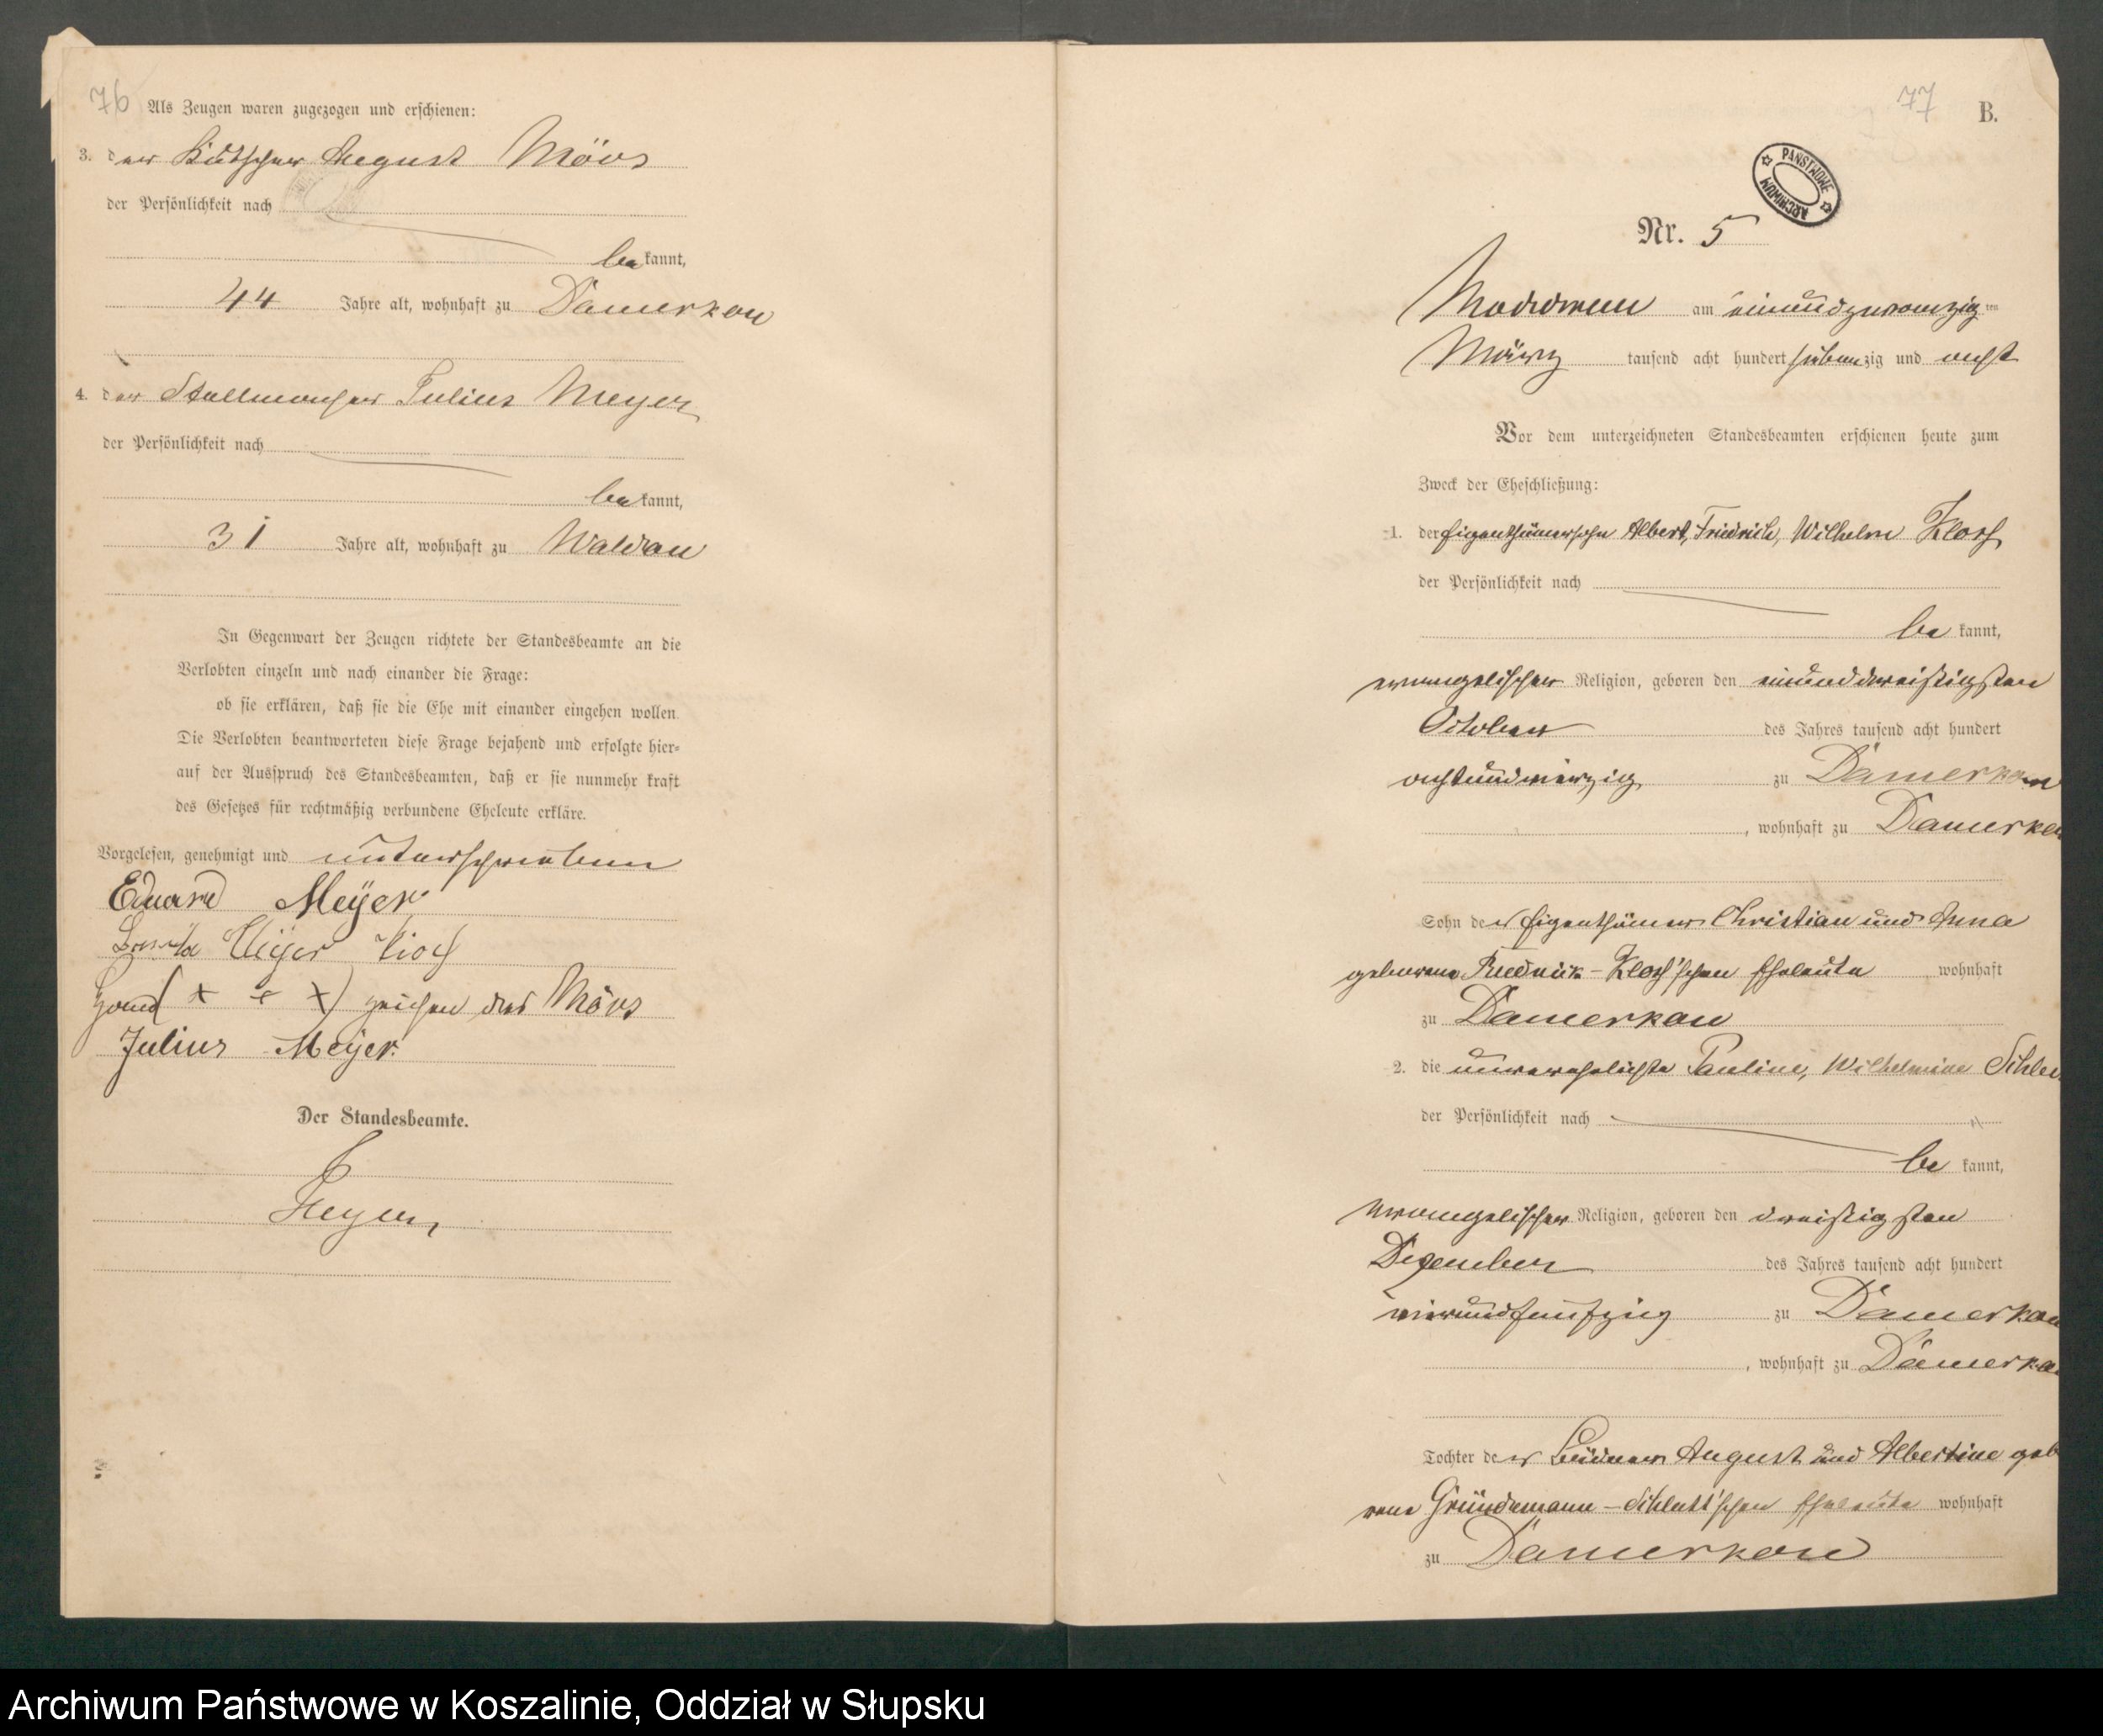 76
Als Zeugen waren zugezogen und erschienen:
3. der Kutscher August Mövs
der Persönlichkeit nach
be kannt,
44 Jahre alt, wohnhaft zu Damerkow
4. der Stellmacher Julius Meyer
der Persönlichkeit nach
be kannt,
31 Jahre alt, wohnhaft zu Waldow
In Gegenwart der Zeugen richtete der Standesbeamte an die
Verlobten einzeln und nach einander die Frage:
ob sie erklären, daß sie die Ehe mit einander eingehen wollen.
Die Verlobten beantworteten diese Frage bejahend und erfolgte hier-
auf der Ausspruch des Standesbeamten, daß er sie nunmehr kraft
des Gesetzes für rechtmäßig verbundene Eheleute erkläre.
Vorgelesen, genehmigt und unterschrieben
Eduard Meÿer
Meÿer
Hand (+ + +) zeichen des Mövs
Julius Meÿer.
Der Standesbeamte.
77
B.
PAŃSTWOWE ARCHIWUM
Nr. 5
am einundzwanzig ten
März tausend acht hundert siebenzig und acht
Vor dem unterzeichneten Standesbeamten erschienen heute zum
Zweck der Eheschließung:
1. der Eigenthümersohn Albert, Friedrich, Wilhelm Kloß
der Persönlichkeit nach
be kannt,
evangelischer Religion, geboren den einunddreißigsten
October des Jahres tausend acht hundert
achtundvierzig zu Damerkow
, wohnhaft zu Damerkow
Sohn der Eigenthümer Christian und Anna
geborene Kloß'schen Eheleute wohnhaft
zu Damerkow
2. die unverehelichte Pauline, Wilhelmine
der Persönlichkeit nach
be kannt,
evangelischer Religion, geboren den dreißigsten
Dezember des Jahres tausend acht hundert
vierundfünfzig zu Damerkow
, wohnhaft zu Damerkow
Tochter der Büdner August und Albertine gebo
rene Gründemann - Schlutt'schen Eheleute wohnhaft
zu Damerkow
Archiwum Państwowe w Koszalinie, Oddział w Słupsku